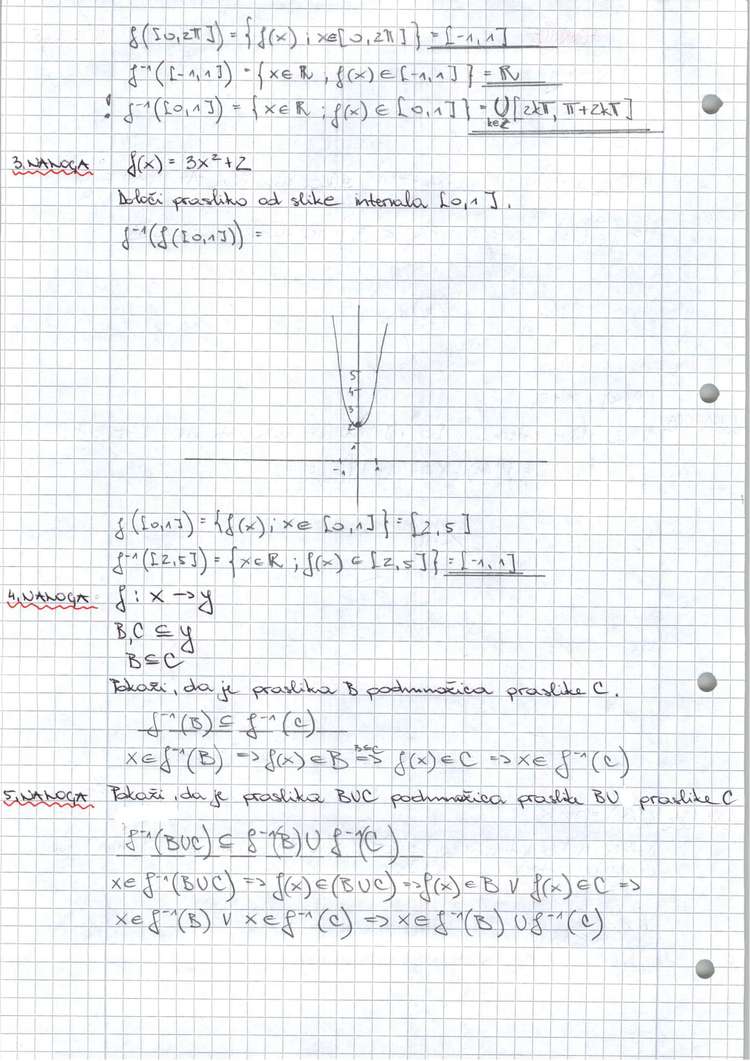 f([0,2π]) = {f(x) ; x∈[0,2π]} = [-1,1]
f⁻¹([-1,1]) = {x∈ℝ ; f(x) ∈ [-1,1]} = ℝ
! f⁻¹([0,1]) = {x∈ℝ ; f(x) ∈ [0,1]} = ⋃ k∈ℤ [2kπ, π+2kπ]
3. NALOGA f(x) = 3x² + 2
Določi prasliko od slike intervala [0,1].
f⁻¹(f([0,1])) =
5
4
3
2
1
-1 1
f([0,1]) = {f(x) ; x∈ [0,1]} = [2,5]
f⁻¹([2,5]) = {x∈ℝ ; f(x) ∈ [2,5]} = [-1,1]
4. NALOGA f : x → y
B,C ⊆ y
B ⊆ C
Pokaži, da je praslika B podmnožica praslike C.
f⁻¹(B) ⊆ f⁻¹(C)
x∈f⁻¹(B) => f(x)∈B B⊆C => f(x)∈C => x∈ f⁻¹(C)
5. NALOGA Pokaži, da je praslika BUC podmnožica praslike BU praslike C
f⁻¹(BUC) ⊆ f⁻¹(B) U f⁻¹(C)
x∈f⁻¹(BUC) => f(x)∈(BUC) => f(x)∈B ∨ f(x)∈C =>
x∈f⁻¹(B) ∨ x∈f⁻¹(C) => x∈f⁻¹(B) U f⁻¹(C)